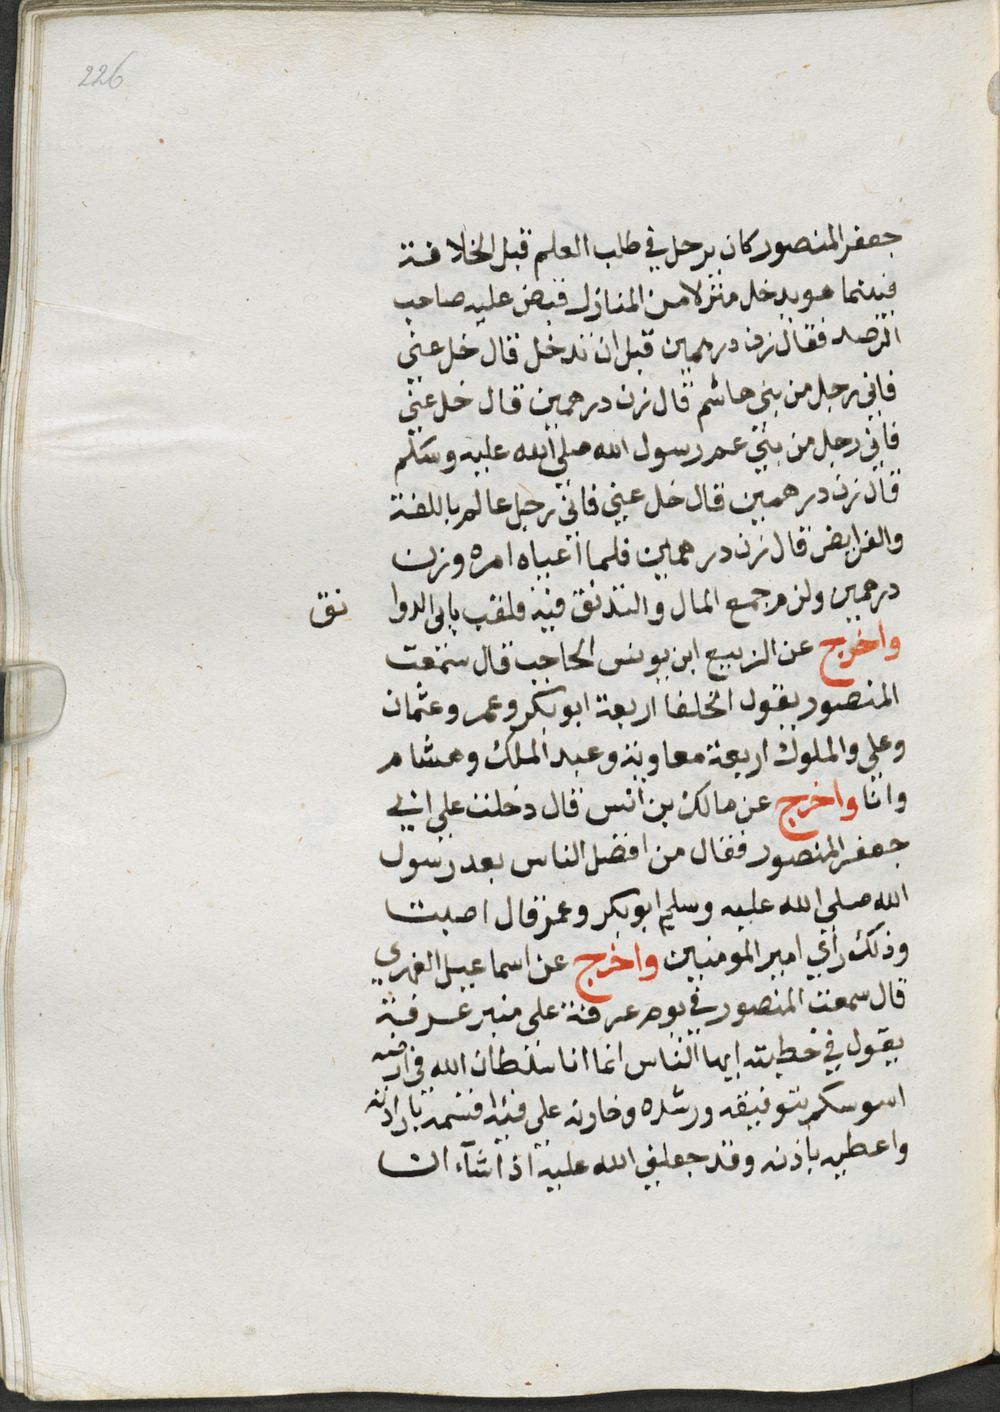 226
جعفر المنصور كان يرحل في طلب العلم قبل الخلافة
فبينما هو يدخل منزلا من المنازل قبض عليه صاحب
الرصد فقال زن درهمين قبل ان تدخل قال خل عني
فاني رجل من بني هاشم قال زن درهمين قال خل عني
فاني رجل من بني عم رسول الله صلى الله عليه وسلم
قال زن درهمين قال خل عني فاني رجل عالم بالفقه
والفرايض قال زن درهمين فلما اعياه امره وزن
درهمين ولزم جمع المال والتدنق فيه فلقب بابي الدوا نق
واخرج عن الربيع ابن يونس الحاجب قال سمعت
المنصور يقول الخلفا اربعة ابو بكر وعمر وعثمان
وعلي والملوك اربعة معاوية وعبد الملك وهشام
وانا واخرج عن مالك بن انس قال دخلت على ابي
جعفر المنصور فقال من افضل الناس بعد رسول
الله صلى الله عليه وسلم ابو بكر وعمر قال اصبت
وذلك رأي امير المومنين واخرج عن اسماعيل الفهري
قال سمعت المنصور في يوم عرفة على منبر عرفة
يقول في خطبته ايها الناس انما انا سلطان الله في ارضه
اسوسكم بتوفيقه ورشده وخازنه على فيئه اقسمه بارادته
واعطيه باذنه وقد جعلني الله عليه اذا شآء ان